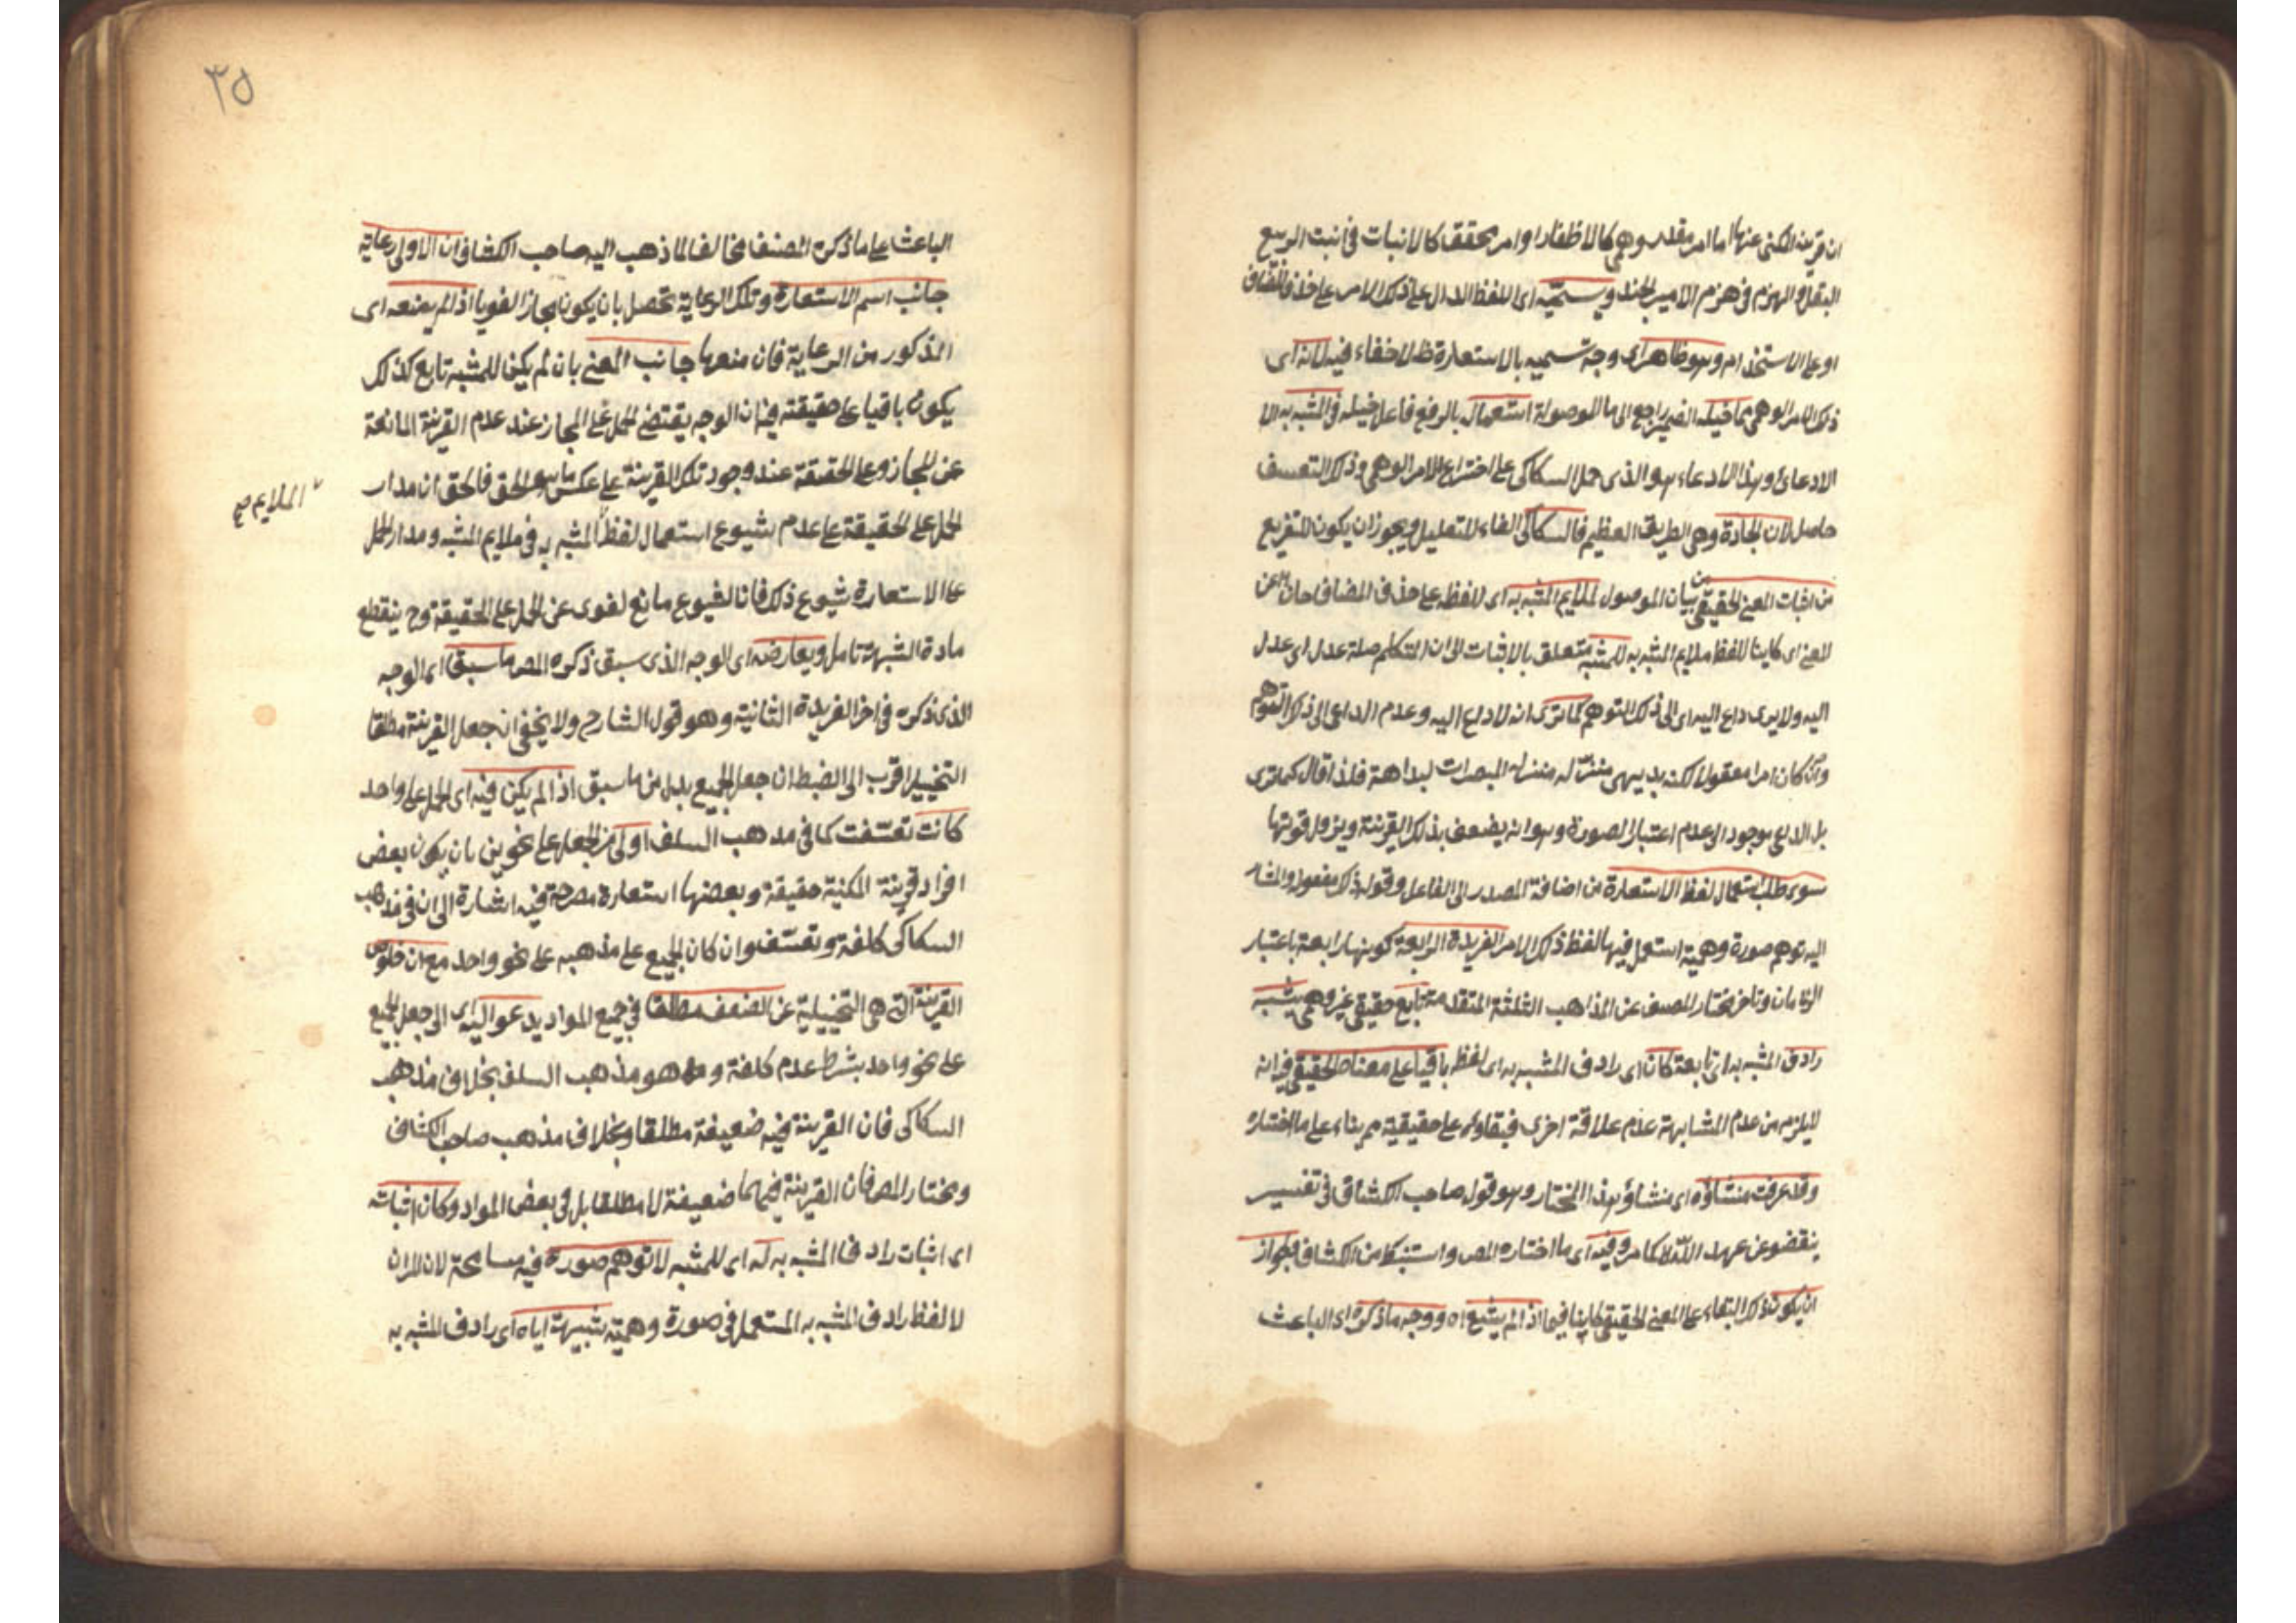 ان قرينة المكنى عنها اما امر مقدر وهمى كالاظفار او امر محقق كالانبات فى انبت الربيع
البقل والهزم فى هزم الامير الجند ويسميه اى اللفظ الدال على ذلك الامر على حذف المضاف
او على الاستخدام وهو ظاهر اى وجه تسميه بالاستعارة ظ لاخفاء فيه لانه اى
ذلك الامر الوهمى مما خيله الضمير راجع الى ما الموصولة استعمال بالرفع فاعل خيله فى المشبه به الا
الادعائى وهذا الادعاء هو الذى حمل السكاكى على اختراع الامر الوهمى وذلك التعسف
حاصل لان الجادة وهى الطريق العظيم فالسكاكى الفاء للتعليل ويجوز ان يكون للتفريع
من اثبات المعنى الحقيقى من بيان الموصول لملايم المشبه به اى لفظه على حذف المضاف حال عن
المعنى اى كاينا للفظ ملايم المشبه به للمشبه متعلق بالاثبات الى ان التكلم صلة عدل اى عدل
اليه ولا يرى داع اليه اى الى ذلك التوهم كما ترى انه لا داع اليه وعدم الداعى الى ذلك التوهم
وان كان امرا معقولا لكنه بديهى منزلة المبصرات لبداهة فلذا قال كما ترى
بل الداعى موجود الى عدم اعتبار الصورة وهو انه يضعف بذلك القرينة ويزول قوتها
سوى طلب استعمال لفظ الاستعارة من اضافة المصدر الى الفاعل وقوله ذلك مفعوله والمشار
اليه توهم صورة وهمية استعمل فيها لفظ ذلك الامر الفريدة الرابعة كونها رابعة باعتبار
الزمان وتاخر مختار المصنف عن المذاهب الثلثة المتقدمة تابع حقيقى غير وهمى يشبه
رادف المشبه به اى تابعه كان اى رادف المشبه به اى لفظه باقيا على معناه الحقيقى فيه انه
لا يلزم من عدم المشابهة عدم علاقة اخرى فبقاؤه على حقيقته مم بناء على ما اختاره
وقد عرفت منشاؤه اى منشاؤ هذا المختار وهو قول صاحب الكشاف فى تفسير
ينقضون عهد الله كما مر وفيه اى ما اختاره المص واستنبط من الكشاف فجواز
ان يكون ذلك البقاء على المعنى الحقيقى كاينا فيما اذا لم يشيع اه ووجه ما ذكره اى الباعث
٣٥
الباعث على ما ذكره المصنف مخالفا لما ذهب اليه صاحب الكشاف ان الاولى رعاية
جانب اسم الاستعارة وتلك الرعاية تحصل بان يكون مجازا لغويا اذا لم يمنعه اى
المذكور من الرعاية فان منعها جانب المعنى بان لم يكن للمشبه تابع كذلك
يكون باقيا على حقيقته فيه ان الوجه يقتضى الحمل على المجاز عند عدم القرينة المانعة
عن المجاز وعلى الحقيقة عند وجود تلك القرينة على عكس ما هو الحق فالحق ان مدار
الملايم صح
الحمل على الحقيقة على عدم شيوع استعمال لفظ المشبه به فى ملايم المشبه ومدار الحمل
على الاستعارة شيوع ذلك فان الشيوع مانع لغوى عن الحمل على الحقيقة وح ينقطع
مادة الشبهة تامل ويعارضه اى الوجه الذى سبق ذكره المص ما سبق اى الوجه
الذى ذكره فى اخر الفريدة الثانية وهو قول الشارح ولا يخفى ان جعل القرينة مطلقا
التخييل اقرب الى الضبط ان جعل الجميع بدل من ما سبق اذا لم يكن فيه اى الحمل على واحد
كانت تعسفت كما فى مذهب السلف اولى من الجعل على نحوين بان يكون بعض
افراد قرينة المكنية حقيقة وبعضها استعارة مصرحة فيه اشارة الى ان فى مذهب
السكاكى كلفة وتعسف وان كان الجميع على مذهبه على نحو واحد مع ان خلوص
القرينة التى هى التخييلية عن الضعف مطلقا فى جميع المواد يدعو اليه اى الى جعل الجميع
على نحو واحد بشرط عدم كلفة وهو مذهب السلف بخلاف مذهب
السكاكى فان القرينة فيه ضعيفة مطلقا وبخلاف مذهب صاحب الكشاف
ومختار المص فان القرينة فيهما ضعيفة لا مطلقا بل فى بعض المواد وكان اثباته
اى اثبات رادف المشبه به له اى للمشبه لا توهم صورة فيه مسامحة لان المراد
لا لفظ رادف المشبه به المستعمل فى صورة وهمية شبيهة اياه اى رادف المشبه به